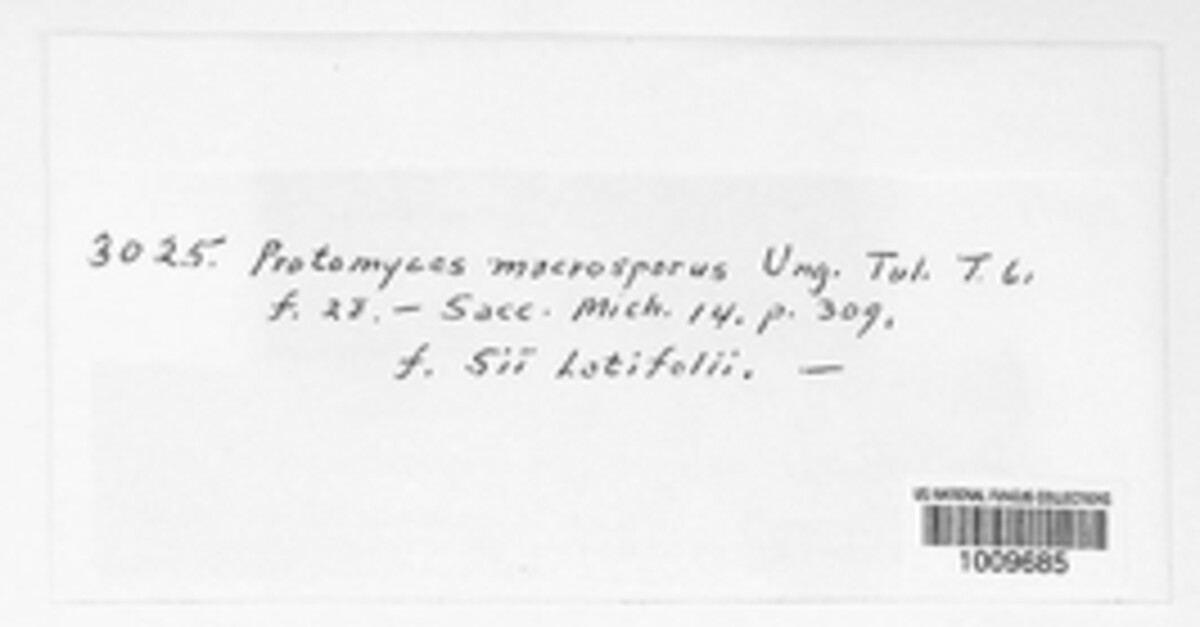 3025. Protomyces macrosporus Ung. Tul. T. 6.
f. 28. — Sacc. Mich. 14. p. 309.
f. Sii Latifolii. —
US NATIONAL FUNGUS COLLECTIONS
1009685